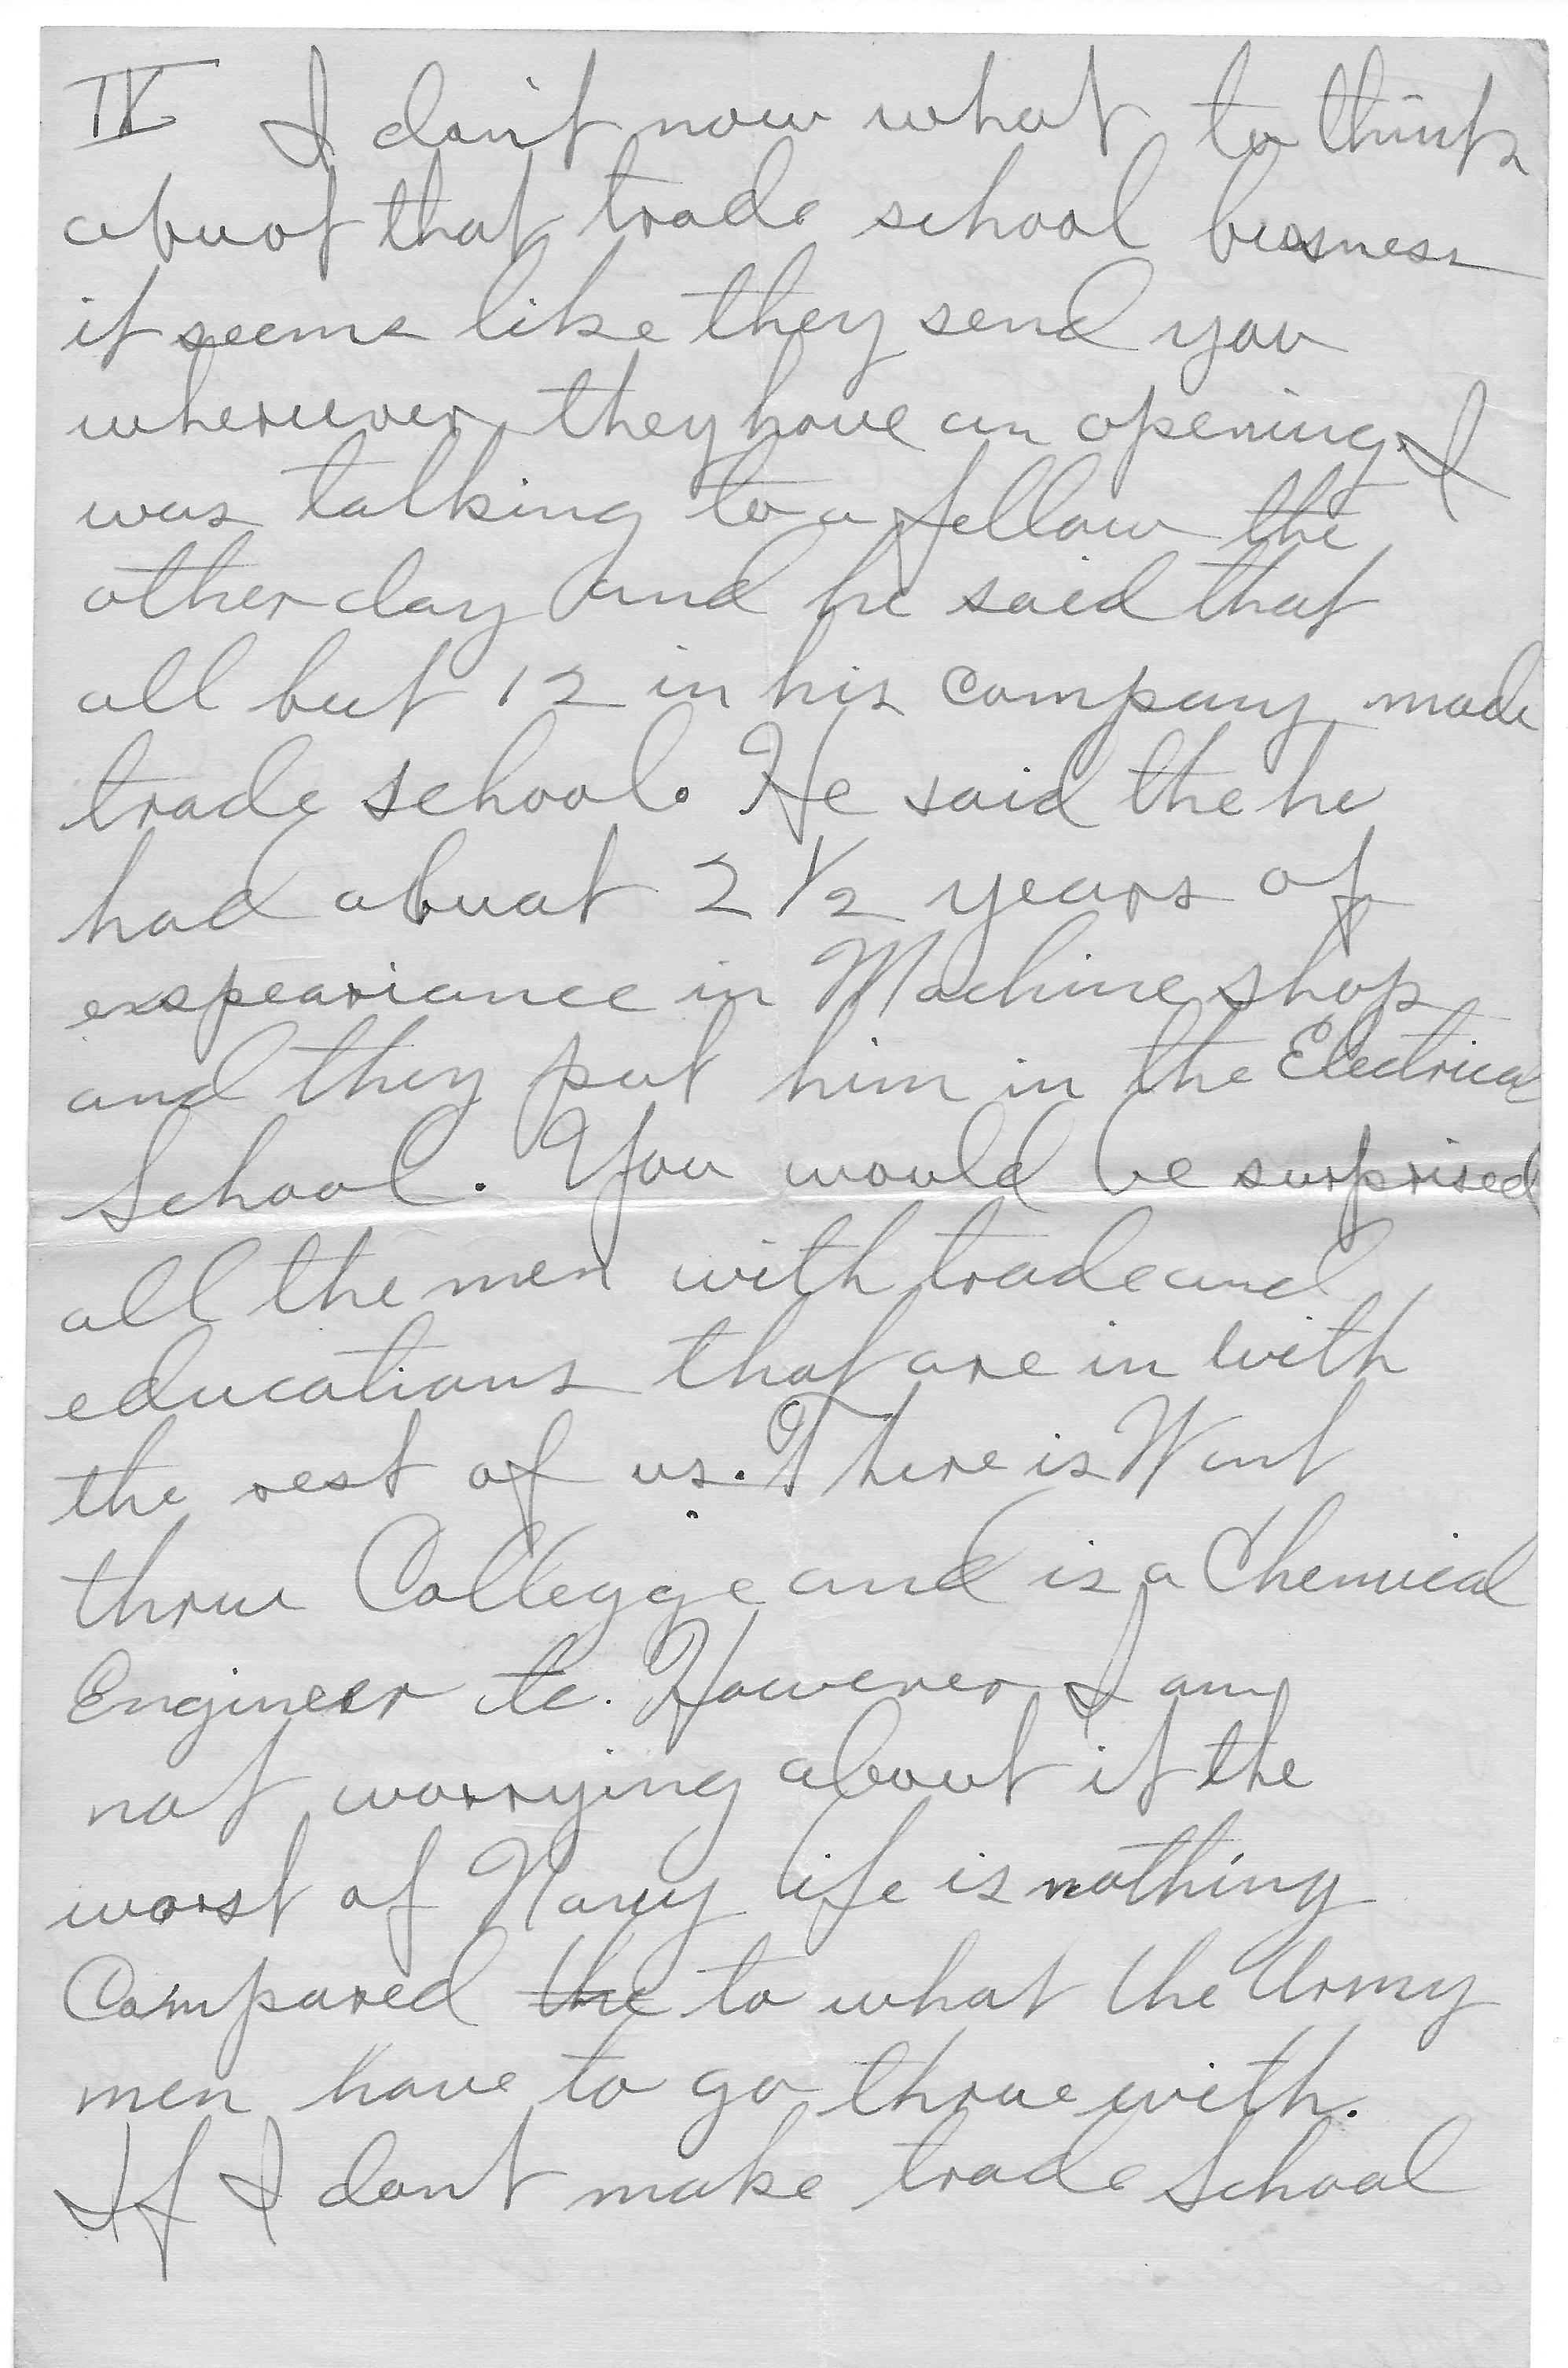 IV I don't now what to think
abuot that trade school busness
it seems like they send you
wheruever they have an opening. I
was talking to a fellow the
other day and he said that
all but 12 in his company made
trade school. He said the he
had abuat 2 1/2 years of
exspeariance in Machine shop
and they put him in the Electrical
School. You would be surprised
all the men with trade and
educations that are in with
the rest of us. There is Went
thrue Collegge and is a Chemical
Engineer tc. However I am
not worrying about it the
worst of Navy life is nothing
Compared the to what the Army
men have to go thrue with.
If I dont make trade School